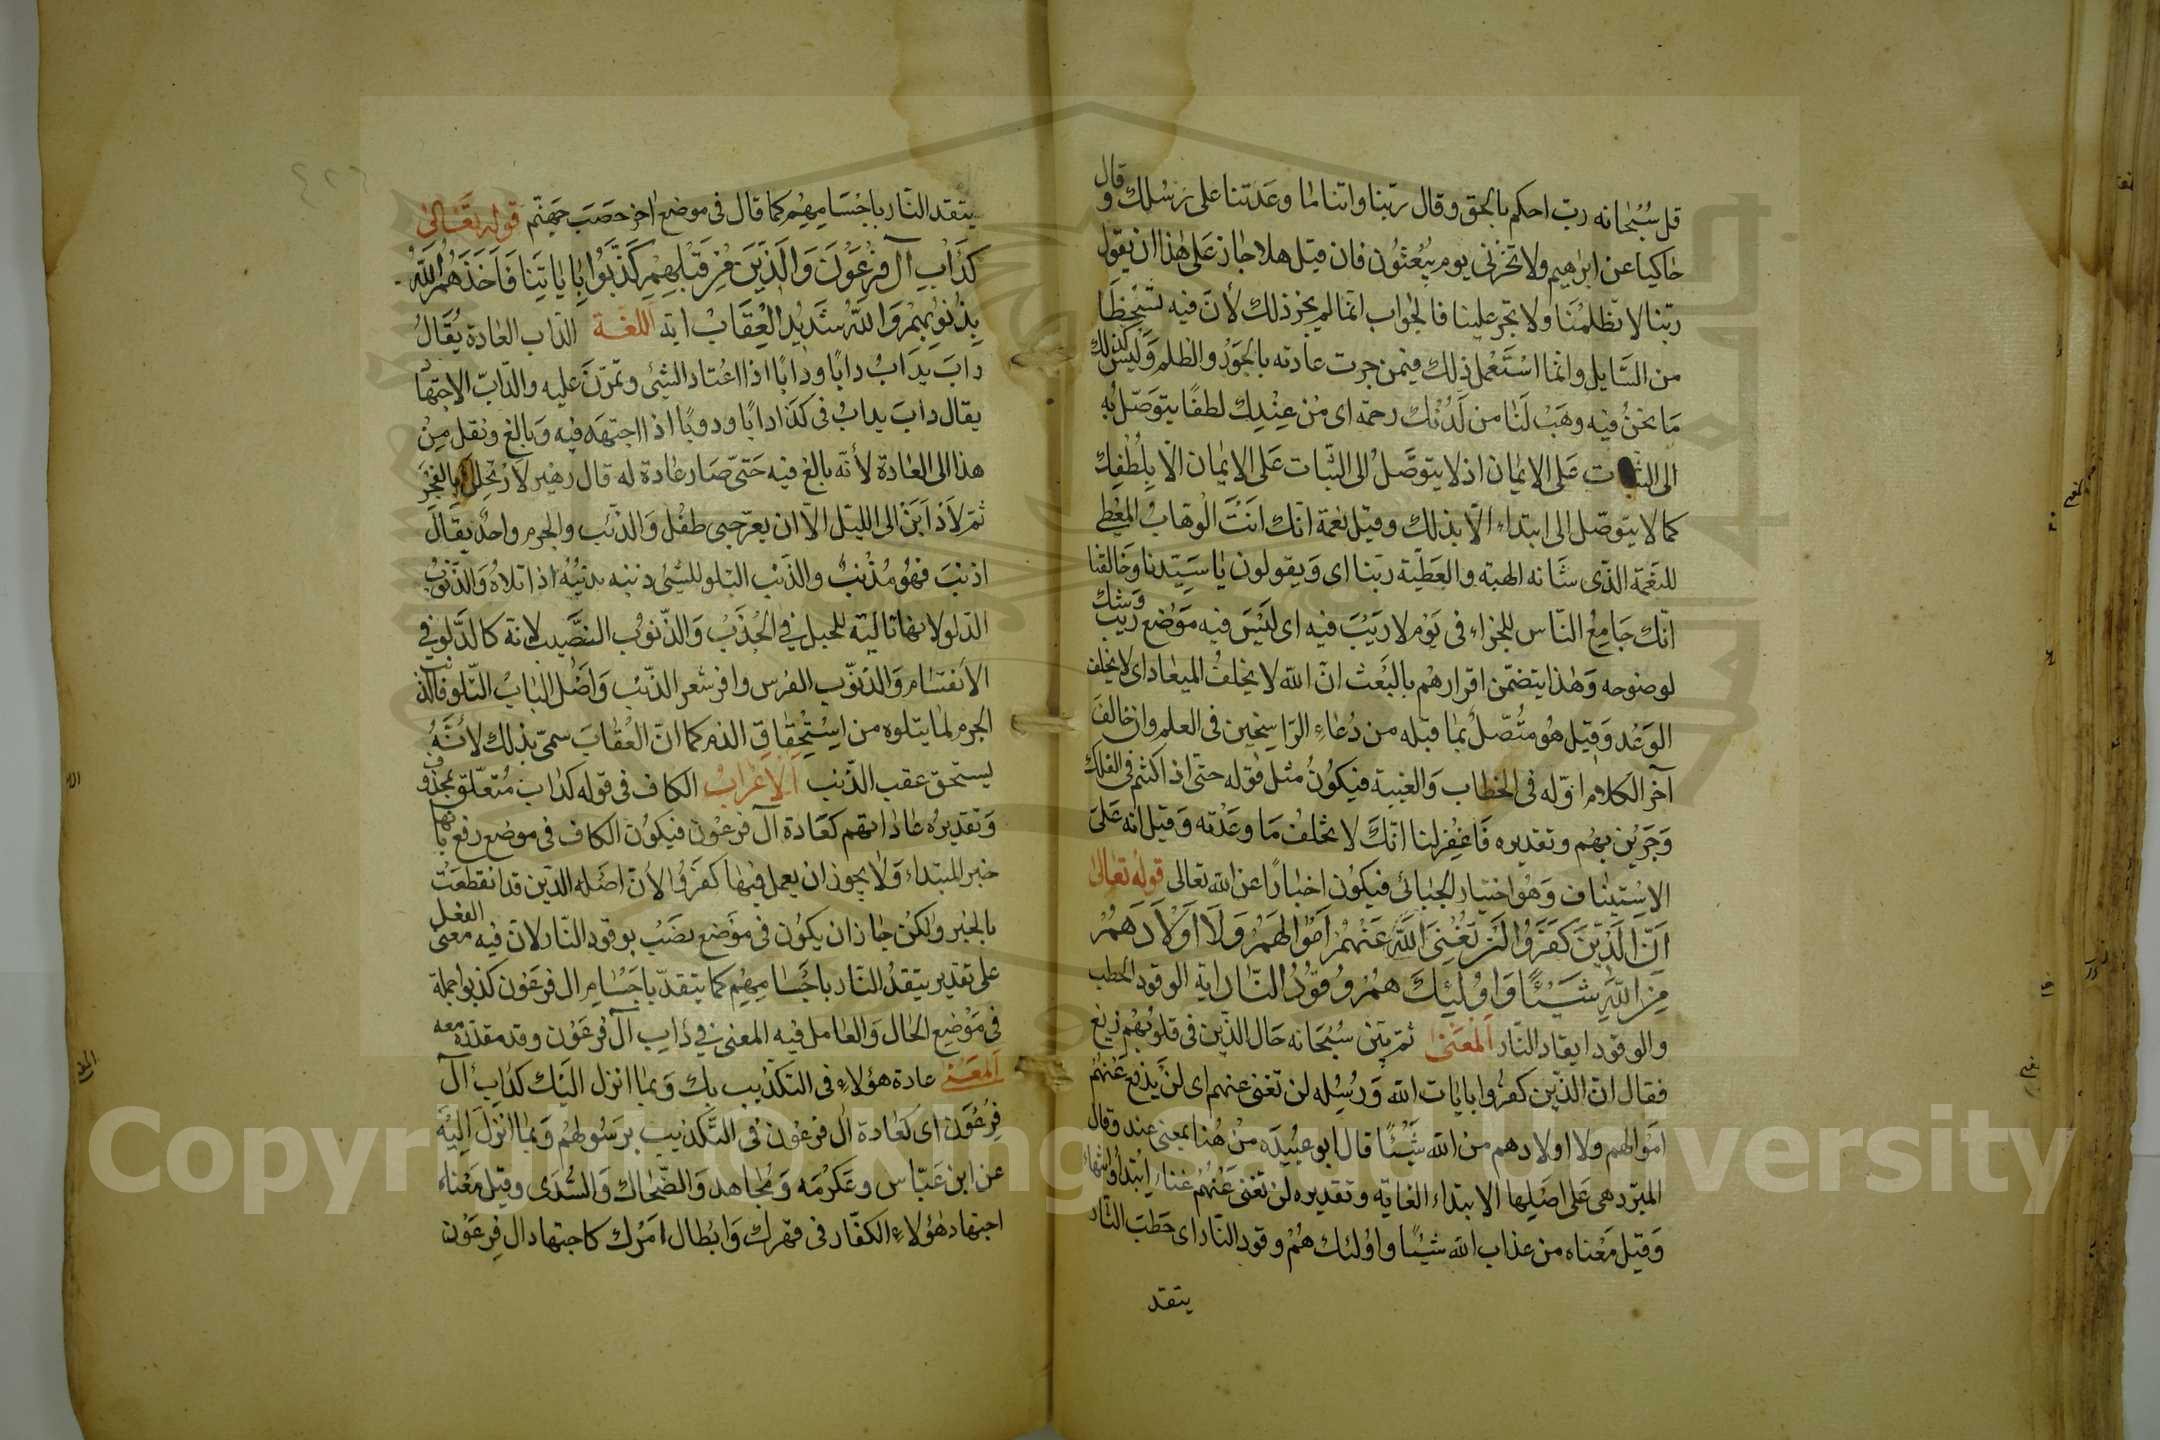 قل سبحانه رب احكم بالحق وقال ربنا واتنا ما وعدتنا على رسلك وقال
حاكيا عن ابراهيم ولا تخزنى يوم يبعثون فان قيل هلا جاز على هذا ان يقول
ربنا لا تظلمنا ولا تجر علينا فالجواب انما لم يجز ذلك لأن فيه تسخطا
من السايل وانما استعمل ذلك فيمن جرت عادته بالجور والظلم وليس كذلك
ما نحن فيه وهب لنا من لدنك رحمة اى من عندك لطفا يتوصل به
الى الثبات على الايمان اذ لا يتوصل الى الثبات على الايمان الا بلطفك
كما لا يتوصل الى ابتداء الا بذلك وقيل نعمة انك انت الوهاب المعطى
للنعمة الذى شانه الهبة والعطية ربنا اى ويقولون يا سيدنا وخالقنا
انك جامع الناس للجزاء فى يوم لا ريب فيه اى ليس فيه موضع ريب وشك
لوضوحه وهذا يتضمن اقرارهم بالبعث ان الله لا يخلف الميعاد اى لا يخلف
الوعد وقيل هو متصل بما قبله من دعاء الراسخين فى العلم وان خالف
آخر الكلام اوله فى الخطاب والغيبة فيكون مثل قوله حتى اذا كنتم فى الفلك
وجرين بهم وتقديره فاغفر لنا انك لا تخلف ما وعدته وقيل انه على
الاستيناف وهو اختيار الجبائى فيكون اخبارا عن الله تعالى قوله تعالى
ان الذين كفروا لن تغنى عنهم اموالهم ولا اولادهم
من الله شيئا واولئك هم وقود النار اية الوقود الحطب
والوقود ايقاد النار المعنى ثم بين سبحانه حال الذين فى قلوبهم زيغ
فقال ان الذين كفروا بايات الله ورسله لن تغنى عنهم اى لن يدفع عنهم
اموالهم ولا اولادهم من الله شيئا قال ابو عبيدة من هنا بمعنى عند وقال
المبرد هى على اصلها الابتداء الغاية وتقديره لن تغنى عنهم غناء ابتداء وانتهاء
وقيل معناه من عذاب الله شيئا واولئك هم وقود النار اى حطب النار
يتقد
يتقد النار باجسامهم كما قال فى موضع اخر حصب جهنم قوله تعالى
كداب آل فرعون والذين من قبلهم كذبوا باياتنا فاخذهم الله
بذنوبهم والله شديد العقاب اية اللغة الداب العادة يقال
داب يداب دابا ودابا اذا اعتاد الشئى وتمرن عليه والداب الاجتهاد
يقال داب يداب فى كذا دابا ودوبا اذا اجتهد فيه وبالغ ونقل من
هذا الى العادة لأنه بالغ فيه حتى صار عادة له قال زهير لارتحلن بالفجر
ثم لادابن الى الليل الا ان يعرجنى طفل والذنب والجرم واحد يقال
اذنب فهو مذنب والذنب التلو للشئى ذنبه يذنبه اذا تلاه والذنوب
الدلو لانها تالية للحبل فى الجذب والذنوب النصيب لانه كالدلو فى
الانقسام والذنوب الفرس وافر شعر الذنب واصل الباب التلو فالذنب
الجرم لما يتلوه من استحقاق الذم كما ان العقاب سمى بذلك لأنه
يستحق عقب الذنب الاعراب الكاف فى قوله كداب متعلق بمحذوف
وتقديره عاداتهم كعادة آل فرعون فيكون الكاف فى موضع رفع بانها
خبر المبتداء ولا يجوز ان يعمل فيها كفروا لأن اصله الذين قد انقطعت
بالخبر ولكن جاز ان يكون فى موضع نصب بوقود النار لان فيه معنى الفعل
على تقدير يتقد النار باجسامهم كما يتقد باجسام ال فرعون كذبوا جملة
فى موضع الحال والعامل فيه المعنى فى داب آل فرعون وقد مقدرة معه
المعنى عادة هؤلاء فى التكذيب بك وبما انزل اليك كداب آل
فرعون اى كعادة ال فرعون فى التكذيب برسولهم وبما انزل اليه
عن ابن عباس وعكرمة ومجاهد والضحاك والسدى وقيل معناه
اجتهاد هؤلاء الكفار فى قهرك وابطال امرك كاجتهاد ال فرعون
Copyright © King Saud University